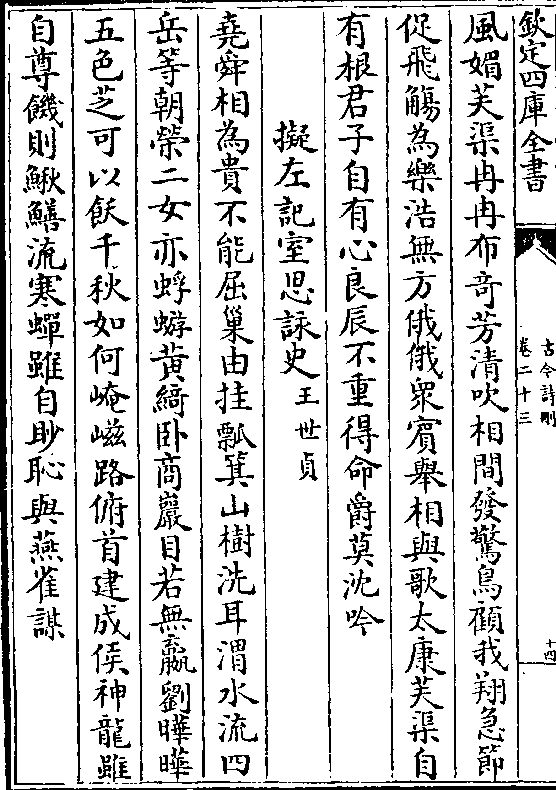 欽定四庫全書
古今詩刪
卷二十三
十四
風媚芙渠冉冉布奇芳清吹相間發驚鳥顧我翔急節
促飛觴為樂浩無方俄俄衆賓舉相與歌太康芙渠自
有根君子自有心良辰不重得命爵莫沈吟
擬左記室思詠史王世貞
堯舜相為貴不能屈巢由挂瓢箕山樹洗耳渭水流四
岳等朝榮二女亦蜉蝣黃綺卧商巖目若無嬴劉曄曄
五色芝可以飫千秋如何崦嵫路俯首建成侯神龍雖
自尊饑則鰍鱔流寒蟬雖自眇恥與燕雀謀